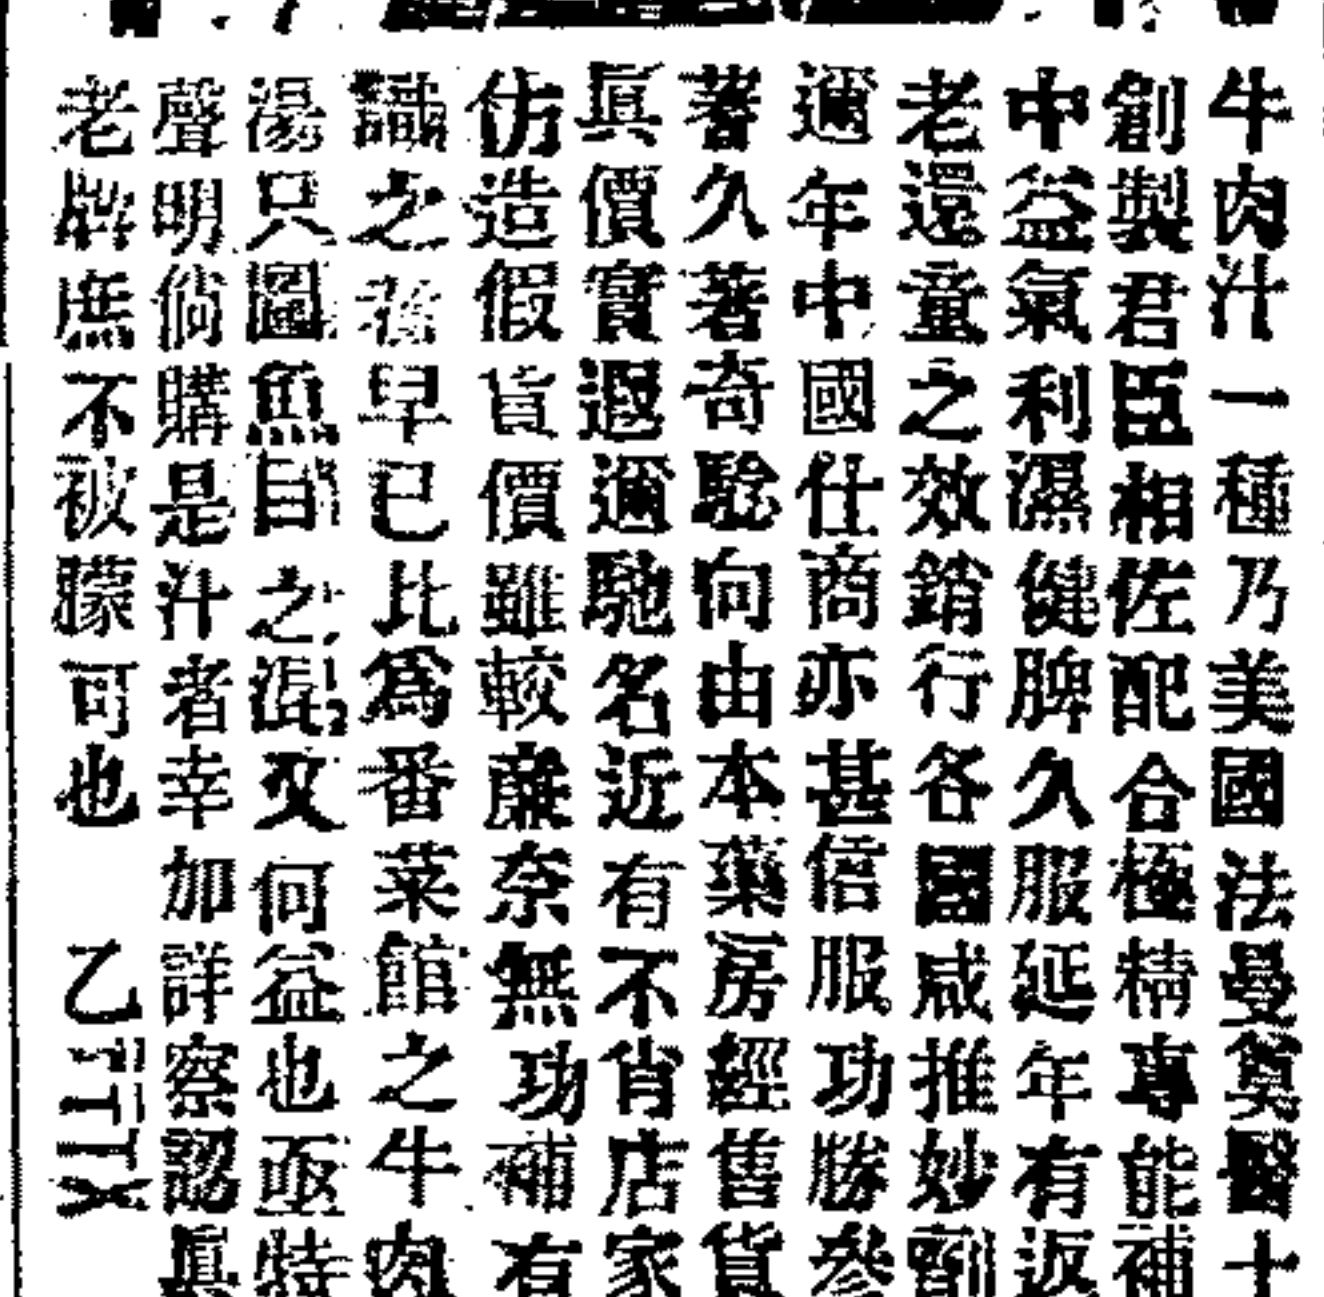 牛肉汁一種乃美國法曼算醫士
創製君臣相佐配合極精專能補
中益氣利濕健脾久服延年有返
老還童之效銷行各國咸推妙劑
邇年中國仕商亦甚信服功勝參
蓍久著奇騐向由本藥房經售貨
眞價實遐邇馳名近有不肖店家
仿造假貨價雖較廉奈無功補有
識之者早已比為番菜館之牛肉
湯只圖魚目之混又何益也亟特
聲明倘購是汁者幸加詳察認眞
老牌庶不被朦可也 乙